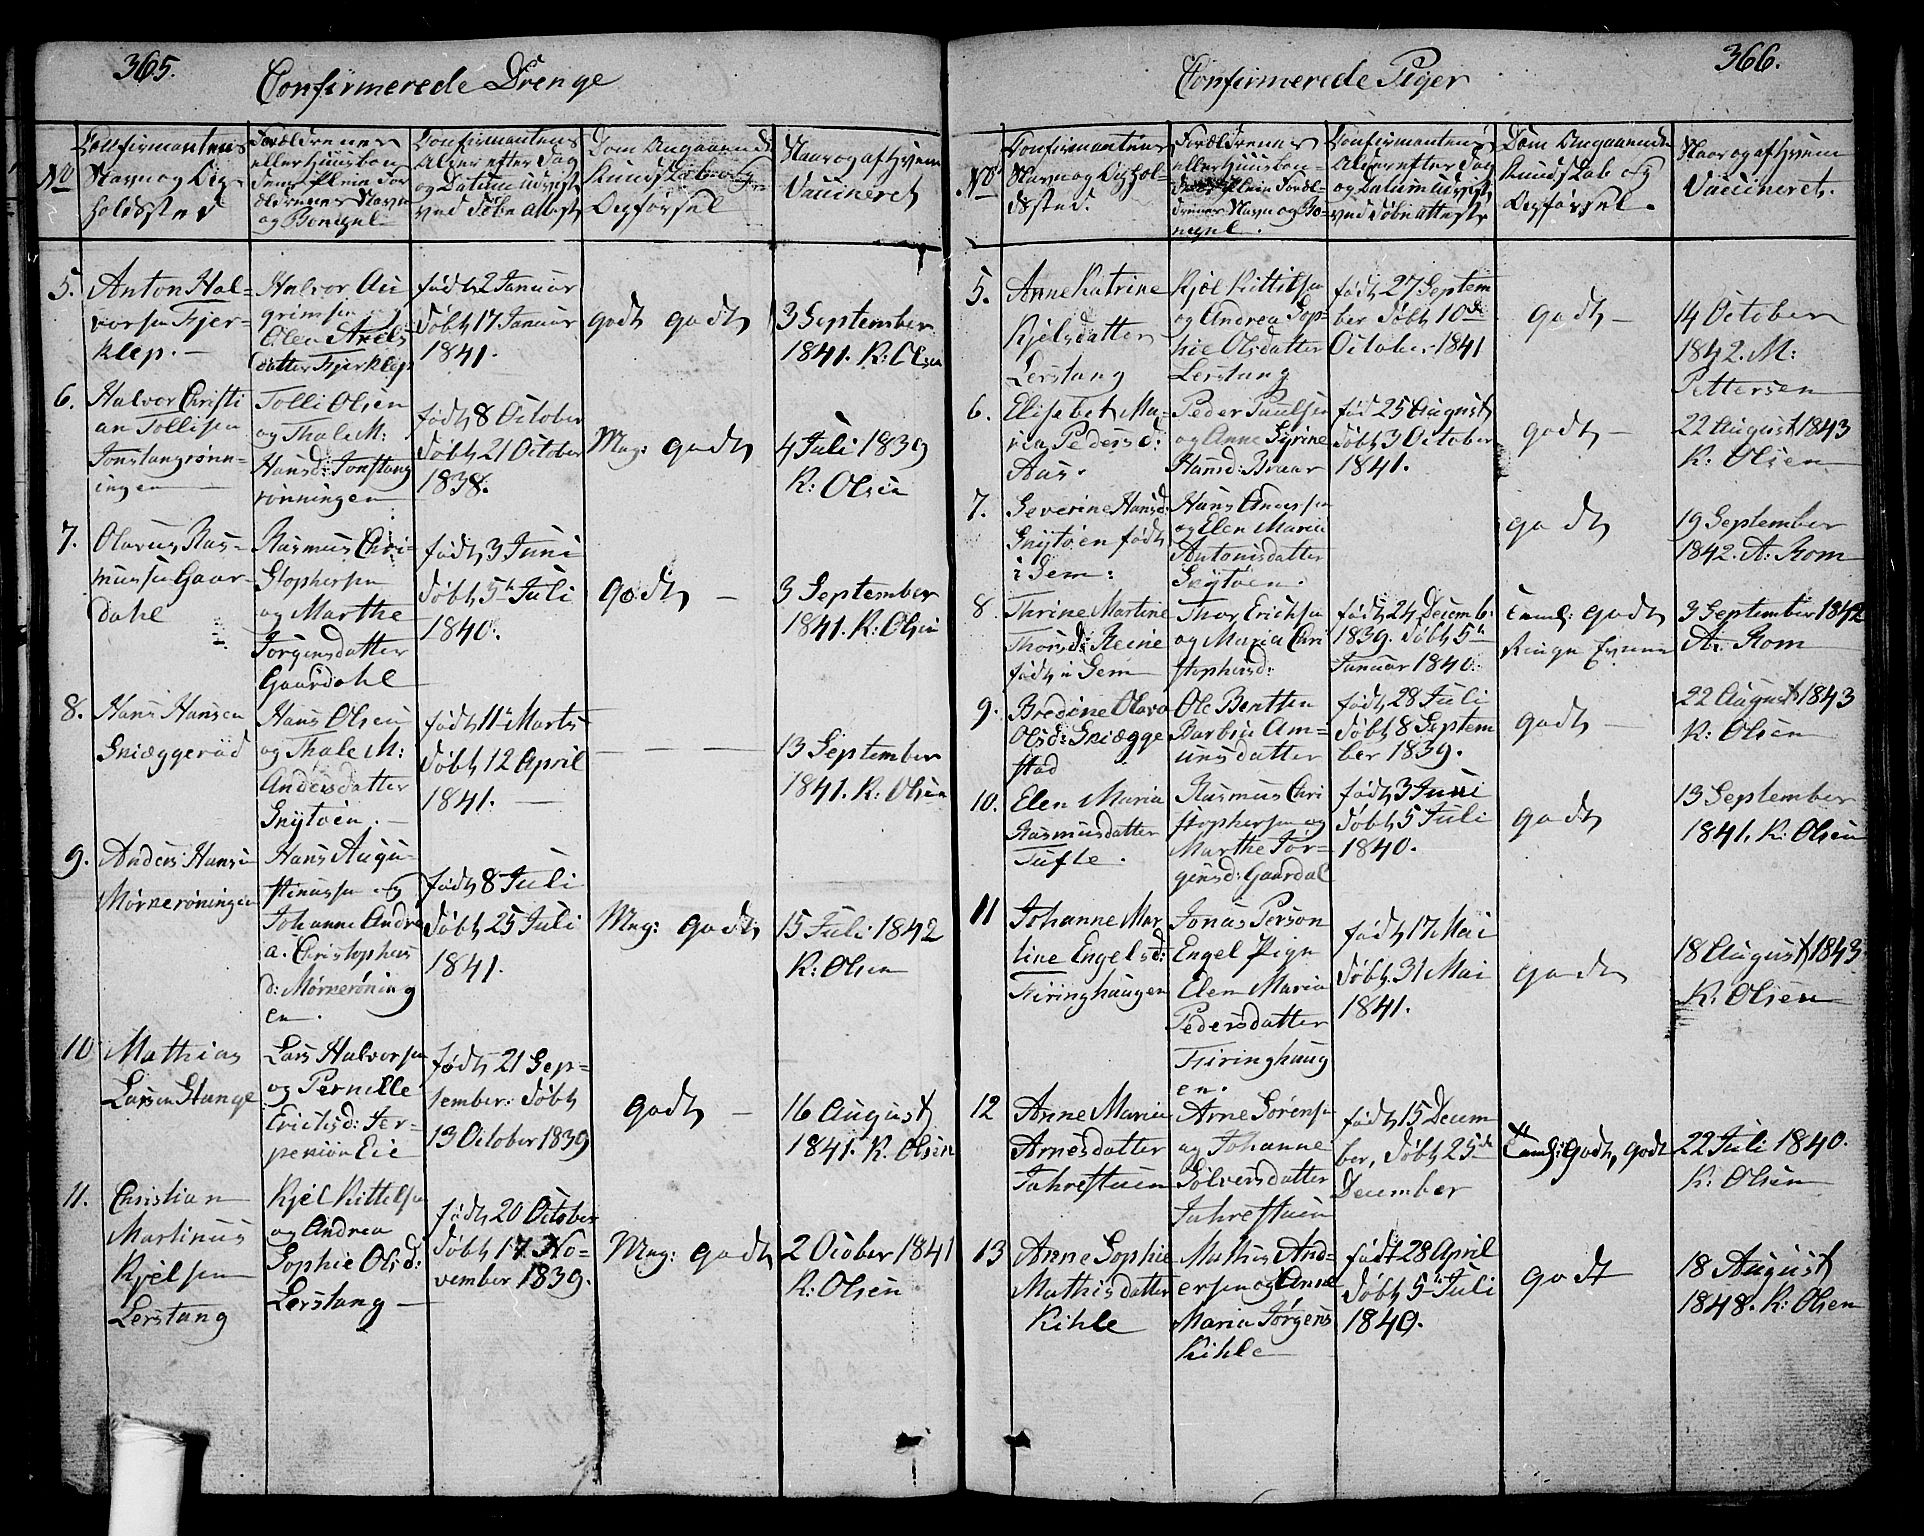 365.
Confirmerede Drenge
No
Confirmantens
Navn og Op-
holdssted
Forældrenes
eller Huusbon
dens
ældrenes Navn
og Bopæl
Confirmantens
Alder efter Dag
og Datum udvist
ved Døbe Attest
Dom Angaaende
Kundskab og
Opførsel
Naar og af Hvem
Vaccineret
5.
Anton Hal-
vorsen Fjer-
klep. —
Halvor Au
grimsen og
Olea Axels
datter Fjerklep
født 2 Januar
døbt 17 Januar
1841.
godt godt
3 September
1841. K: Olsen
6.
Halvor Christi
an Tollisen
Jonstangrønn-
ingen —
Tolli Olsen
og Thale M:
Hansd: Jonstang
rønningen —
født 8 October
døbt 21 October
1838.
Mag: godt
4 Juli 1839
K: Olsen
7.
Olavus Ras-
musen Gaar-
dahl
Rasmus Chri-
stophersen
og Marthe
Jørgensdatter
Gaardahl
født 3 Juni
døbt 5te Juli
1840.
godt —
3 September
1841. K: Olsen
8.
Hans Hansen
Sniæggerød
Hans Olsen
og Thale M:
Andersdatter
Snytøen. —
født 11te Marts
døbt 12 April
1841. —
— — —
13 September
1841. K: Olsen
9.
Anders Hansen
Mørnerøningen
Hans Augu-
stinussen og
Johanne Andre
a. Christophers
d: Mørnerøning
en.
født 8 Juli
døbt 25 Juli
1841.
Mag: godt
15 Juli 1842
K: Olsen
10
Mathias
Larsen Stange
Lars Halvorsen
og Pernille
Erichsd: Jer-
pekiøn Eie
født 21 Sep-
tember. døbt
13 October 1839
godt —
16 August
1841. K. Olsen
11.
Christian
Martinus
Kjelsen
Lerstang
Kjel Kittelsen
og Andrea
Sophie Olsd:
Lerstang —
født 20 October
døbt 17 No-
vember 1839.
Mag: godt
2 Ocober 1841
K: Olsen
366.
Confirmerede Piger
No
Confirmantens
Navn og Ophol-
dsted.
Forældrenes
eller Huusbon-
drenes Navn og Bo-
pæl.
Confirmantens
Alder efter Dag
og Datum udvist
ved Døbe Atteste
Dom Angaaende
Kundskab og
Opførsel.
Naar og af Hvem
Vaccineret.
5.
Anne Katrine
Kjelsdatter
Lerstang
Kjel Kittilsen
og Andrea Sop-
hie Olsdatter
Lerstang
født 27 Septem
ber Døbt 10de
October 1841
godt —
14 October
1842. M:
Pettersen
6.
Elisebet Ma-
ria Pedersd:
Aas.
Peder Paulsen
og Anne Syrine
Hansd: Braar
fød 25 August
døbt 3 October
1841.
godt —
22 August 1843
K: Olsen
7.
Severine Hansd:
Snytøen født
i Sem:
Hans Andersen
og Elen Maria
Antonisdatter
Snytøen.
godt
19 September
1842. A: Rom
8
Thrine Martine
Thorsd: Reine
født i Sem
Thor Ericksen
og Maria Chri
stophersd:
født 24 Decemb:
1839. døbt 5te
Januar 1840.
Teml: godt
Ringe Evner
3 September 1842
A: Rom
9.
Bredine Olava
Olsd: Sniægge
stad
Ole Bentsen
Barbru Am-
unsdatter
født 28 Juli
døbt 8 Septem
ber 1839.
godt —
22 August 1843
K: Olsen
10.
Elen Maria
Rasmusdatter
Tufte.
Rasmus Chri
stophersen og
Marthe Jør-
gensd: Gaardal
født 3 Juni
døbt 5 Juli
1840.
godt
13 September
1841. K: Olsen
11
Johanne Mar
tine Engelsd:
Fiiringhaugen
Jonas Person
Engel Pign
Elen Maria
Pedersdatter
Fiiringhaug
en.
født 17 Mai
døbt 31 Mai
1841.
godt
18 August 1843
K: Olsen
12
Anne Maria
Arnesdatter
Jahrestuen
Arne Sørensen
og Johanne
Sølversdatter
Jahrestuen
født 15 Decem
ber, døbt 25de
December
Teml: godt, godt
22 Juli 1840.
K: Olsen
13
Anne Sophie
Mathisdatter
Kihle
Mathis And-
ersen og Anne
Maria Jørgens
Kihle
født 28 April
døbt 5te Juli
1840.
godt
18 August
1848. K: Olsen